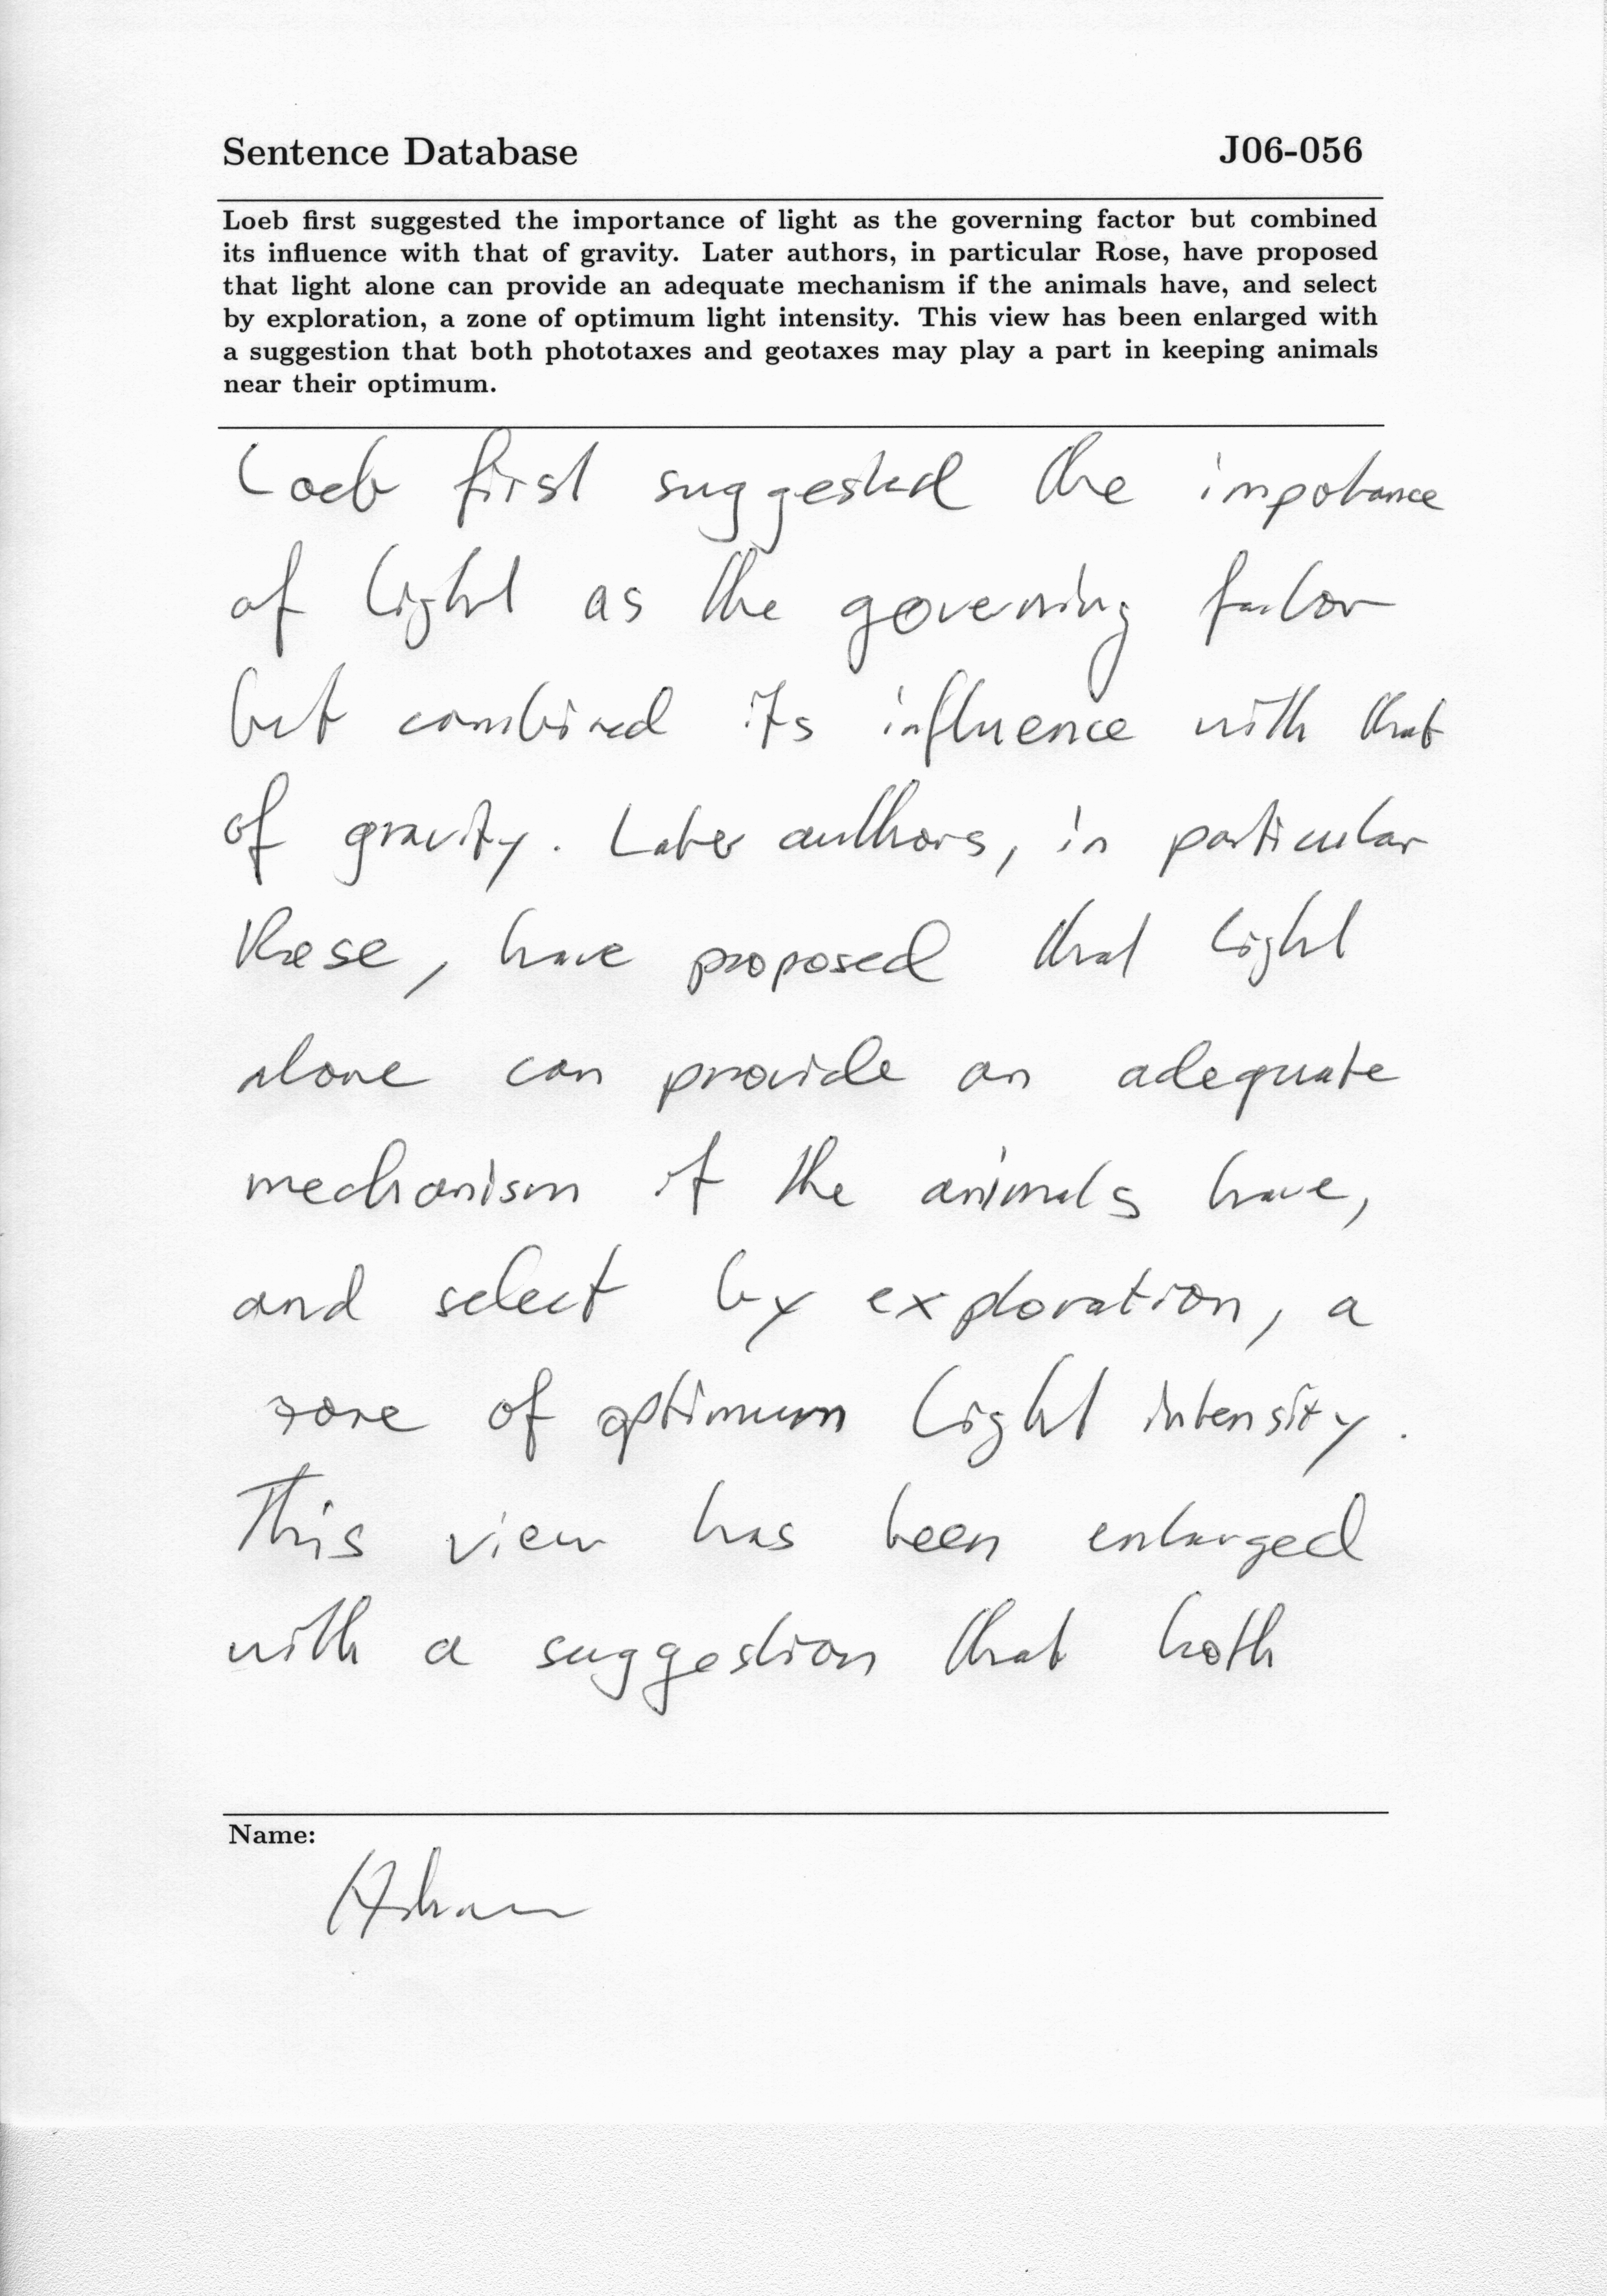 Sentence Database J06-056
Loeb first suggested the importance of light as the governing factor but combined
its influence with that of gravity. Later authors, in particular Rose, have proposed
that light alone can provide an adequate mechanism if the animals have, and select
by exploration, a zone of optimum light intensity. This view has been enlarged with
a suggestion that both phototaxes and geotaxes may play a part in keeping animals
near their optimum.
Loeb first suggested the impotance
of light as the governing factor
but combined its influence with that
of gravity. Later authors, in particular
Rose, have proposed that light
alone can provide an adequate
mechanism if the animals have,
and select by exploration, a
zone of optimum light intensity.
This view has been enlarged
with a suggestion that both
Name: